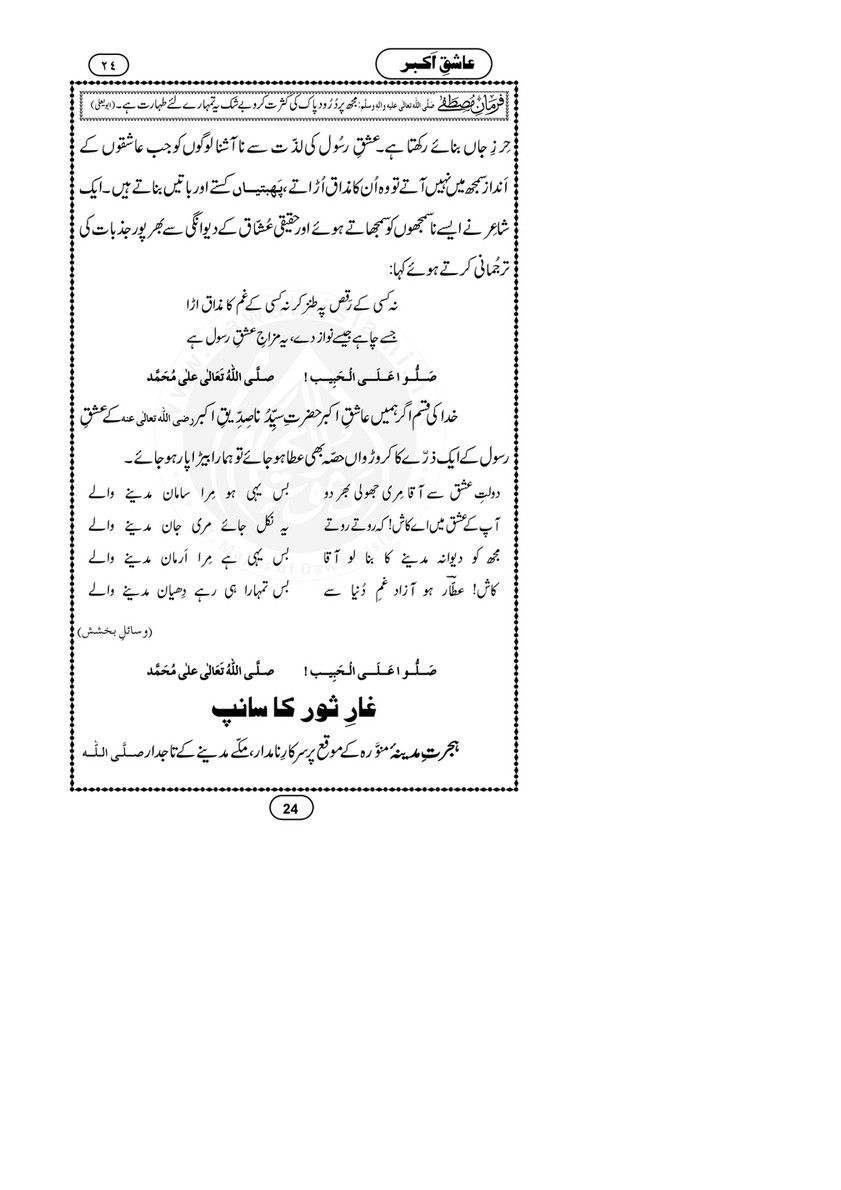 عاشقِ اَکبر
٢٤
فرمانِ مُصطَفٰے صَلَّی اللہ تعالٰی علیہ واٰلہٖ وسلَّم: مجھ پر دُرُود پاک کی کثرت کرو بے شک یہ تمہارے لئے طہارت ہے۔ (ابو یعلی)
حِرزِ جاں بنائے رکھتا ہے۔ عشقِ رسُول کی لذّت سے ناآشنا لوگوں کو جب عاشقوں کے
اَنداز سمجھ میں نہیں آتے تو وہ اُن کا مذاق اُڑاتے، پَھبتیاں کستے اور باتیں بناتے ہیں۔ ایک
شاعِر نے ایسے ناسمجھوں کو سمجھاتے ہوئے اور حقیقی عُشّاق کے دیوانگی سے بھرپور جذبات کی
ترجُمانی کرتے ہوئے کہا:
نہ کسی کے رَقص پہ طنز کر نہ کسی کے غم کا مذاق اڑا
جسے چاہے جیسے نواز دے، یہ مزاجِ عشقِ رسول ہے
صَلُّوا عَلَی الْحَبِیب! صلَّی اللہُ تَعَالٰی علٰی مُحَمَّد
خدا کی قسم اگر ہمیں عاشقِ اکبر حضرتِ سیِّدُنا صِدِّیقِ اکبر رضی اللہ تعالٰی عنہ کے عشقِ
رسول کے ایک ذرّے کا کروڑواں حصّہ بھی عطا ہو جائے تو ہمارا بیڑا پار ہو جائے۔
دولتِ عشق سے آقا مِری جھولی بھر دو بس یہی ہو مِرا سامان مدینے والے
آپ کے عشق میں اے کاش! کہ روتے روتے یہ نکل جائے مری جان مدینے والے
مجھ کو دیوانہ مدینے کا بنا لو آقا بس یہی ہے مِرا اَرمان مدینے والے
کاش! عطّار ہو آزاد غمِ دُنیا سے بس تمہارا ہی رہے دِھیان مدینے والے
(وسائلِ بخشش)
صَلُّوا عَلَی الْحَبِیب! صلَّی اللہُ تَعَالٰی علٰی مُحَمَّد
غارِ ثور کا سانپ
ہجرتِ مدینۂ منوَّرہ کے موقع پر سرکارِ نامدار، مکّے مدینے کے تاجدار صلَّی اللہ
24